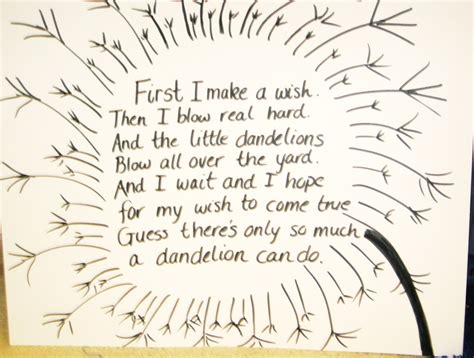 First I make a wish.
Then I blow real hard.
And the little dandelions
Blow all over the yard.
And I wait and I hope
for my wish to come true
Guess there's only so much
a dandelion can do.